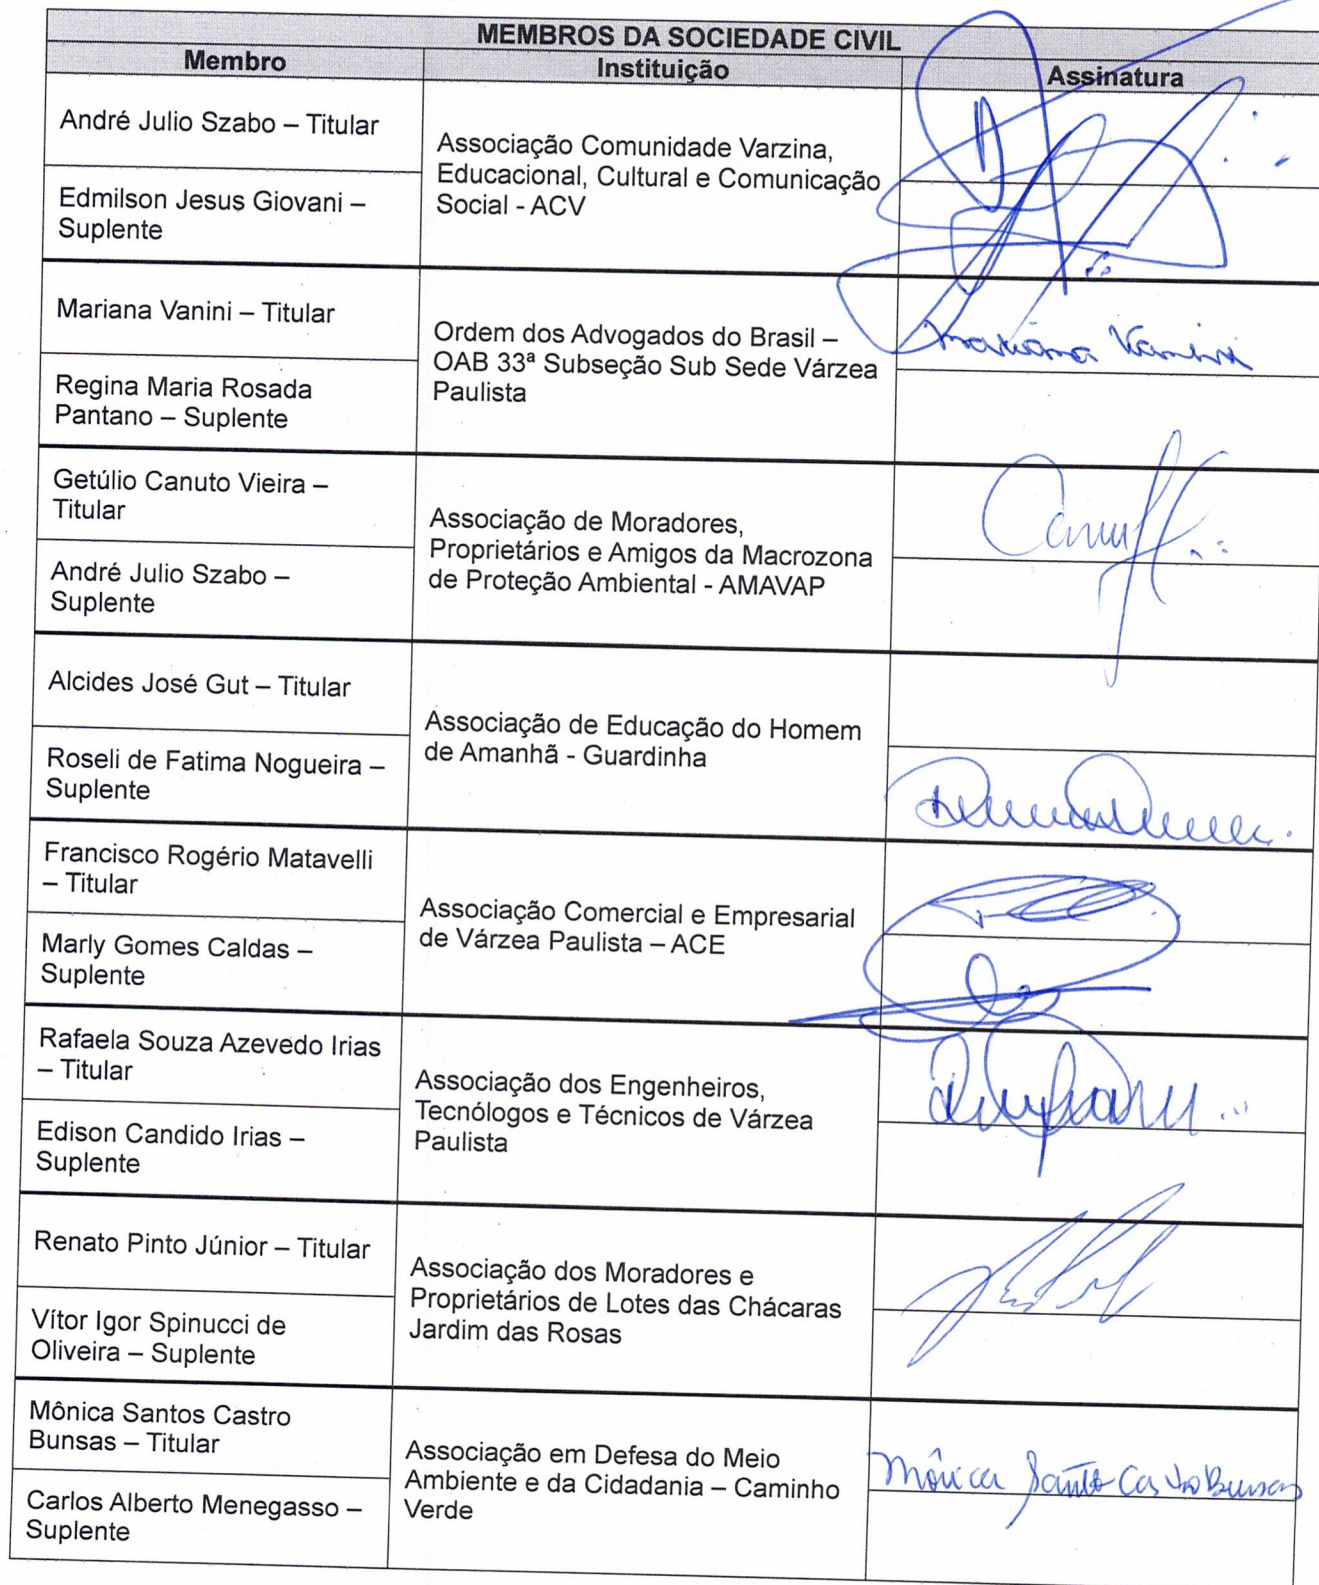 MEMBROS DA SOCIEDADE CIVIL
Membro
Instituição
Assinatura
André Julio Szabo – Titular
Associação Comunidade Varzina,
Educacional, Cultural e Comunicação
Social - ACV
Edmilson Jesus Giovani –
Suplente
Mariana Vanini – Titular
Ordem dos Advogados do Brasil –
OAB 33ª Subseção Sub Sede Várzea
Paulista
Mariana Vanini
Regina Maria Rosada
Pantano – Suplente
Getúlio Canuto Vieira –
Titular
Associação de Moradores,
Proprietários e Amigos da Macrozona
de Proteção Ambiental - AMAVAP
André Julio Szabo –
Suplente
Alcides José Gut – Titular
Associação de Educação do Homem
de Amanhã - Guardinha
Roseli de Fatima Nogueira –
Suplente
Francisco Rogério Matavelli
– Titular
Associação Comercial e Empresarial
de Várzea Paulista – ACE
Marly Gomes Caldas –
Suplente
Rafaela Souza Azevedo Irias
– Titular
Associação dos Engenheiros,
Tecnólogos e Técnicos de Várzea
Paulista
Edison Candido Irias –
Suplente
Renato Pinto Júnior – Titular
Associação dos Moradores e
Proprietários de Lotes das Chácaras
Jardim das Rosas
Vítor Igor Spinucci de
Oliveira – Suplente
Mônica Santos Castro
Bunsas – Titular
Associação em Defesa do Meio
Ambiente e da Cidadania – Caminho
Verde
Mônica Santos Castro Bunsas
Carlos Alberto Menegasso –
Suplente